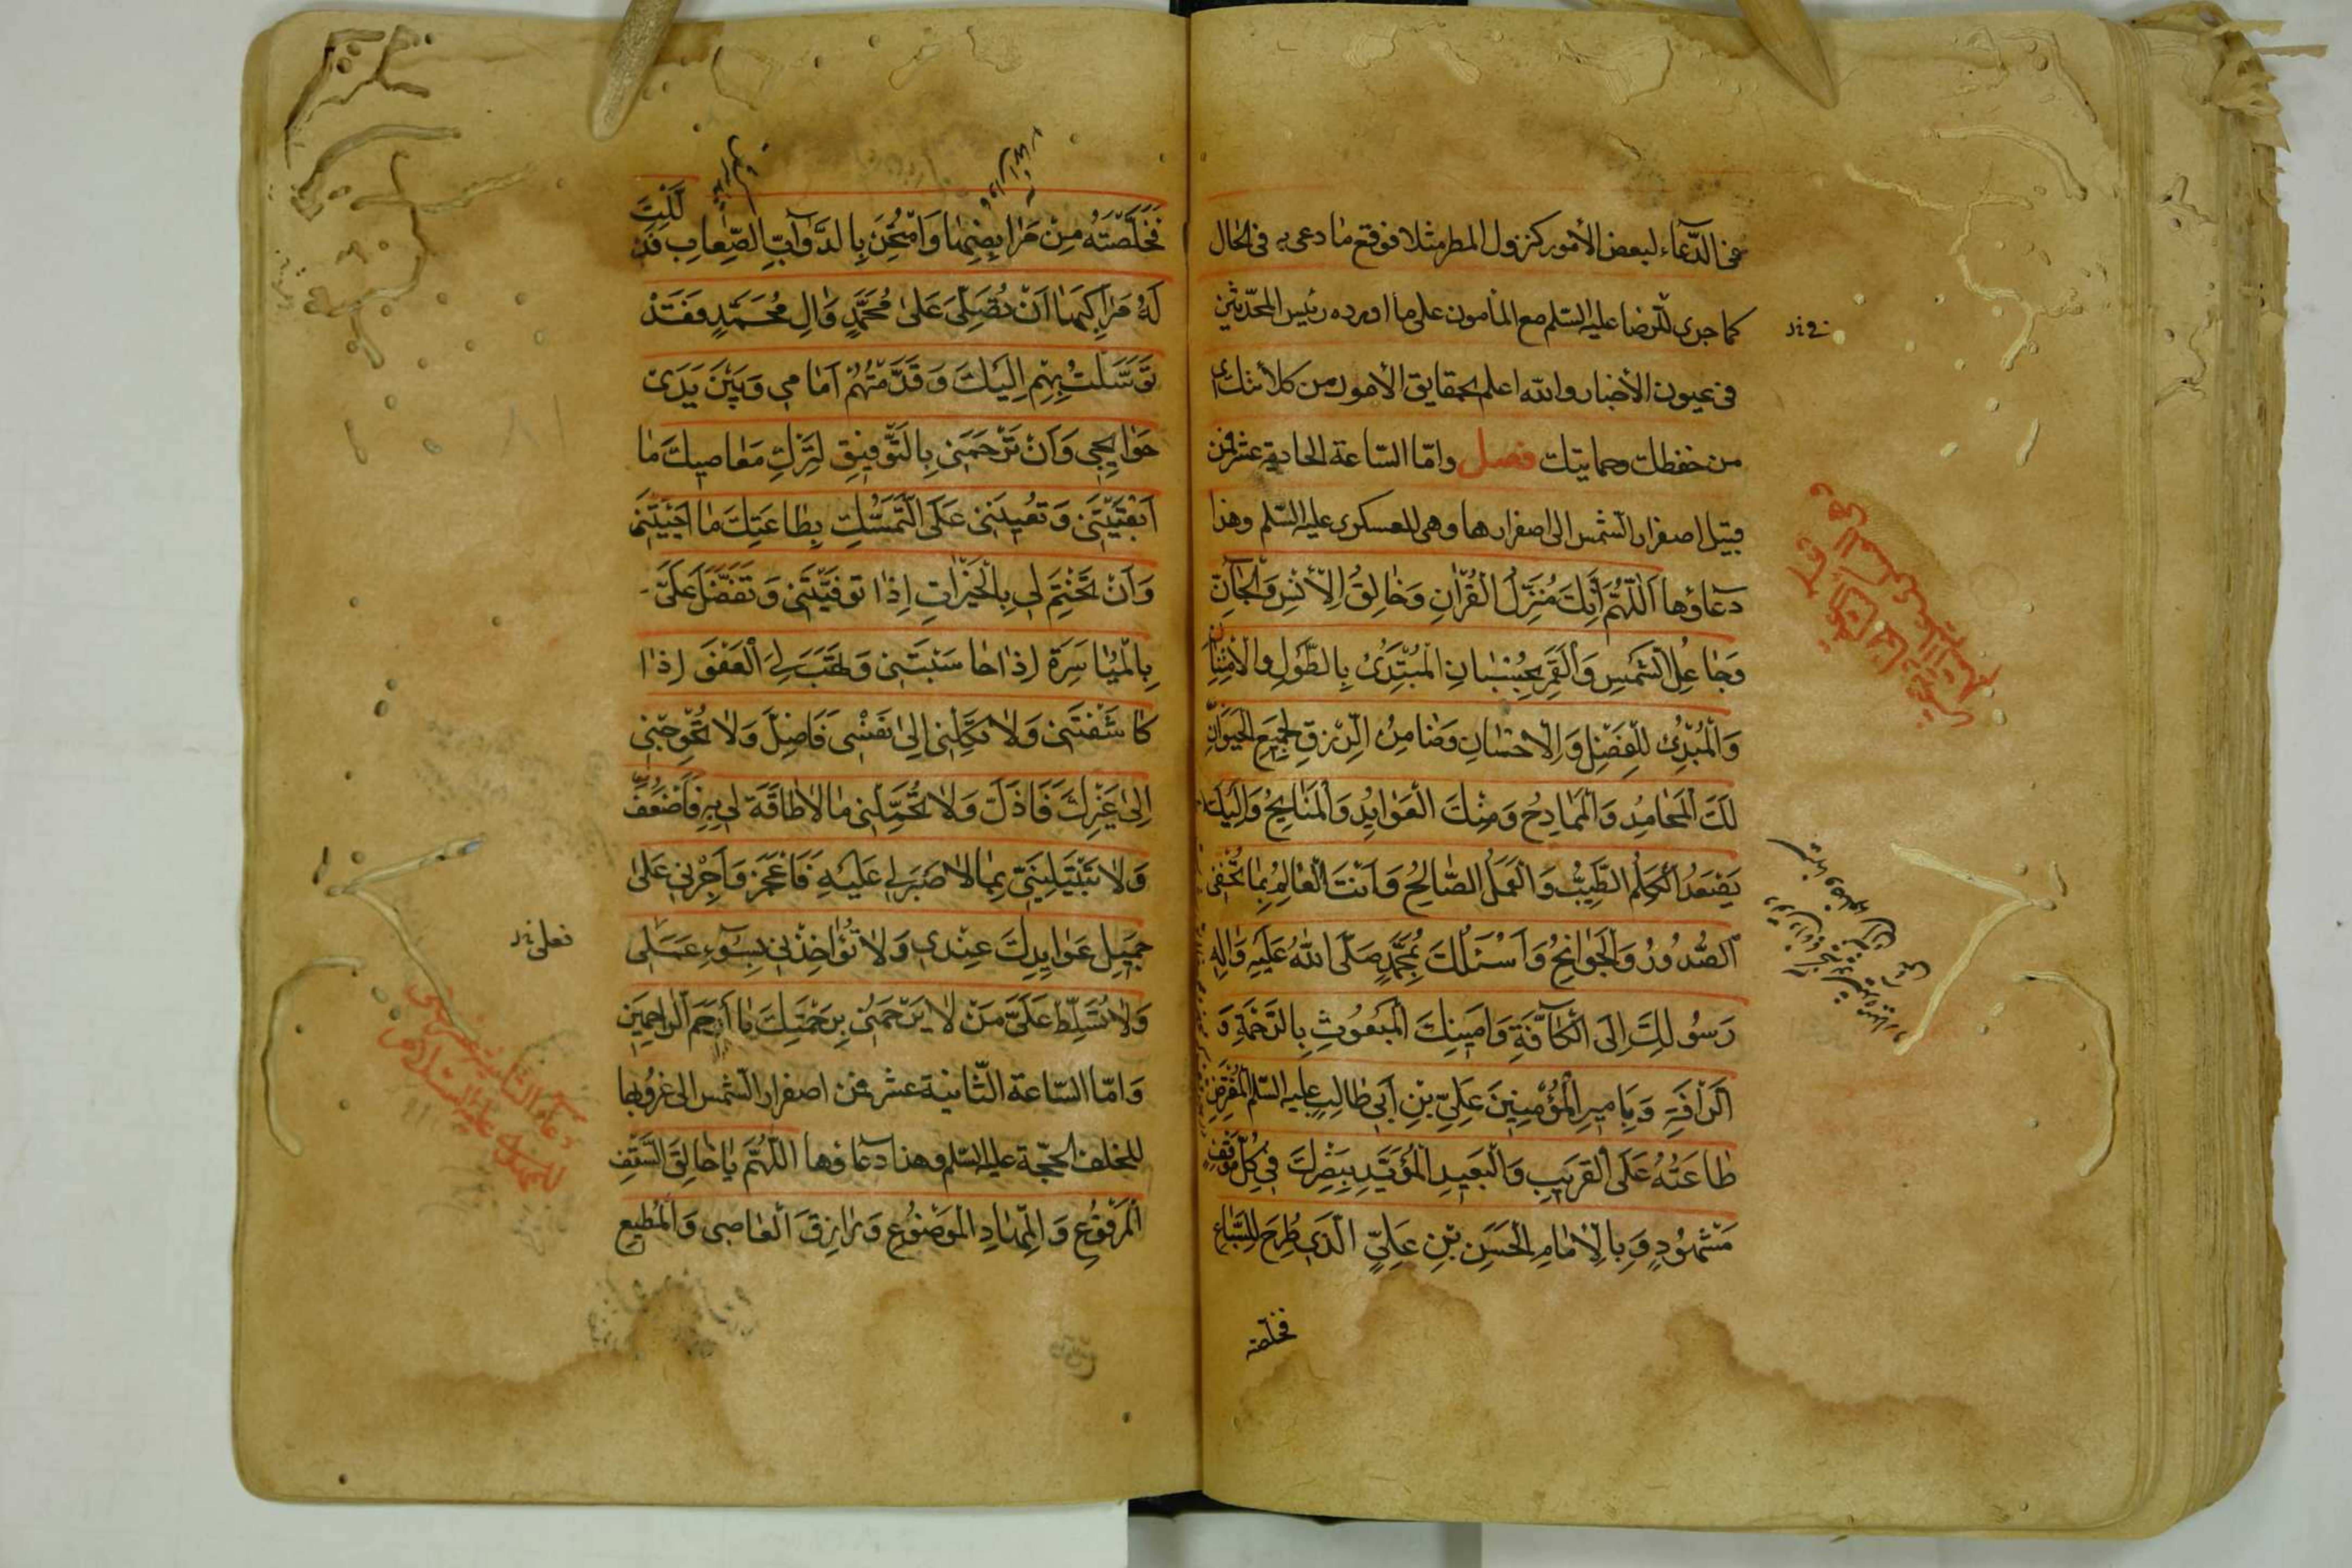 عن الدّعاء لبعض الأمور كنزول المطر مثلا فوقع ما دعى به فى الحال
كما جرى للرّضا عليه السّلم مع المأمون على ما اورده رئيس المحدّثين
فى عيون الأخبار والله اعلم بحقايق الأمور من كلأتك
من حفظك وحمايتك فصل وامّا السّاعة الحادية عشر فمن
قبيل اصفرار الشمس الى اصفرارها وهى للعسكرى عليه السّلم وهذا
دعاؤها اَللّهُمَّ اِنَّكَ مُنَزِّلُ الْقُرْاٰنِ وَخٰالِقُ الْاِنْسِ وَالْجٰانِّ
وَجٰاعِلُ الشَّمْسِ وَالْقَمَرِ بِحُسْبٰانٍ الْمُبْتَدِئُ بِالطَّوْلِ وَالْاِمْتِنٰانِ
وَالْمُبْدِئُ لِلْفَضْلِ وَالْاِحْسٰانِ وَضٰامِنُ الرِّزْقِ لِجَمِيعِ الْحَيَوٰانِ
لَكَ الْمَحٰامِدُ وَالْمَمٰادِحُ وَمِنْكَ الْعَوٰايِدُ وَالْمَنٰايِحُ وَاِلَيْكَ
يَصْعَدُ الْكَلِمُ الطَّيِّبُ وَالْعَمَلُ الصّٰالِحُ وَاَنْتَ الْعٰالِمُ بِمٰا تُخْفِى
الصُّدُورُ وَالْجَوٰانِحُ وَاَسْئَلُكَ بِمُحَمَّدٍ صَلَّى اللهُ عَلَيْهِ وَاٰلِهِ
رَسُولِكَ اِلَى الْكٰافَّةِ وَاَمِينِكَ الْمَبْعُوثِ بِالرَّحْمَةِ وَ
الرَّاْفَةِ وَبِاَمِيرِ الْمُؤْمِنِينَ عَلِيِّ بْنِ اَبِي طٰالِبٍ عليه السّلم الْمُفْتَرَضِ
طٰاعَتُهُ عَلَى الْقَرِيبِ وَالْبَعِيدِ الْمُؤَيَّدِ بِنَصْرِكَ فِي كُلِّ مَوْقِفٍ
مَشْهُودٍ وَبِالْاِمٰامِ الْحَسَنِ بْنِ عَلِيٍّ الَّذِي طُرِحَ لِلسِّبٰاعِ
فخلّصته
فَخَلَّصْتَهُ مِنْ مَرٰابِضِهٰا وَامْتُحِنَ بِالدَّوٰابِّ الصِّعٰابِ فَذَلَّلْتَ
لَهُ مَرٰاكِبَهٰا اَنْ تُصَلِّىَ عَلىٰ مُحَمَّدٍ وَاٰلِ مُحَمَّدٍ فَقَدْ
تَوَسَّلْتُ بِهِمْ اِلَيْكَ وَقَدَّمْتُهُمْ اَمٰامِي وَبَيْنَ يَدَىْ
حَوٰايِجِي وَاَنْ تَرْحَمَنِي بِالتَّوْفِيقِ لِتَرْكِ مَعٰاصِيكَ مٰا
اَبْقَيْتَنِي وَتُعِينَنِي عَلَى التَّمَسُّكِ بِطٰاعَتِكَ مٰا اَحْيَيْتَنِي
وَاَنْ تَخْتِمَ لِي بِالْخَيْرٰاتِ اِذٰا تَوَفَّيْتَنِي وَتَفَضَّلَ عَلَىَّ
بِالْمُيٰاسَرَةِ اِذٰا حٰاسَبْتَنِي وَتَهَبَ لِىَ الْعَفْوَ اِذٰا
كٰاشَفْتَنِي وَلٰا تَكِلْنِي اِلىٰ نَفْسِي فَاَضِلَّ وَلٰا تُحْوِجْنِي
اِلىٰ غَيْرِكَ فَاَذِلَّ وَلٰا تُحَمِّلْنِي مٰا لٰا طٰاقَةَ لِي بِهِ فَاَضْعُفَ
وَلٰا تَبْتَلِيَنِّي بِمٰا لٰا صَبْرَ لِي عَلَيْهِ فَاَعْجِزَ وَاَجِرْنِي عَلىٰ
جَمِيلِ عَوٰايِدِكَ عِنْدِي وَلٰا تُؤٰاخِذْنِي بِسُوۤءِ عَمَلِى
فعلى خ‌ز
وَلٰا تُسَلِّطْ عَلَىَّ مَنْ لٰا يَرْحَمُنِي بِرَحْمَتِكَ يٰا اَرْحَمَ الرّٰاحِمِينَ
وَامّا السّاعة الثّانية عشر فمن اصفرار الشمس الى غروبها
للخلف الحجّة عليه السّلم وهذا دعاؤها اَللّهُمَّ يٰا خٰالِقَ السَّقْفِ
الْمَرْفُوعِ وَالْمِهٰادِ الْمَوْضُوعِ وَرٰازِقَ الْعٰاصِى وَالْمُطِيعِ
دعاء الثانية عشر وهى
للمهدى عليه السلام